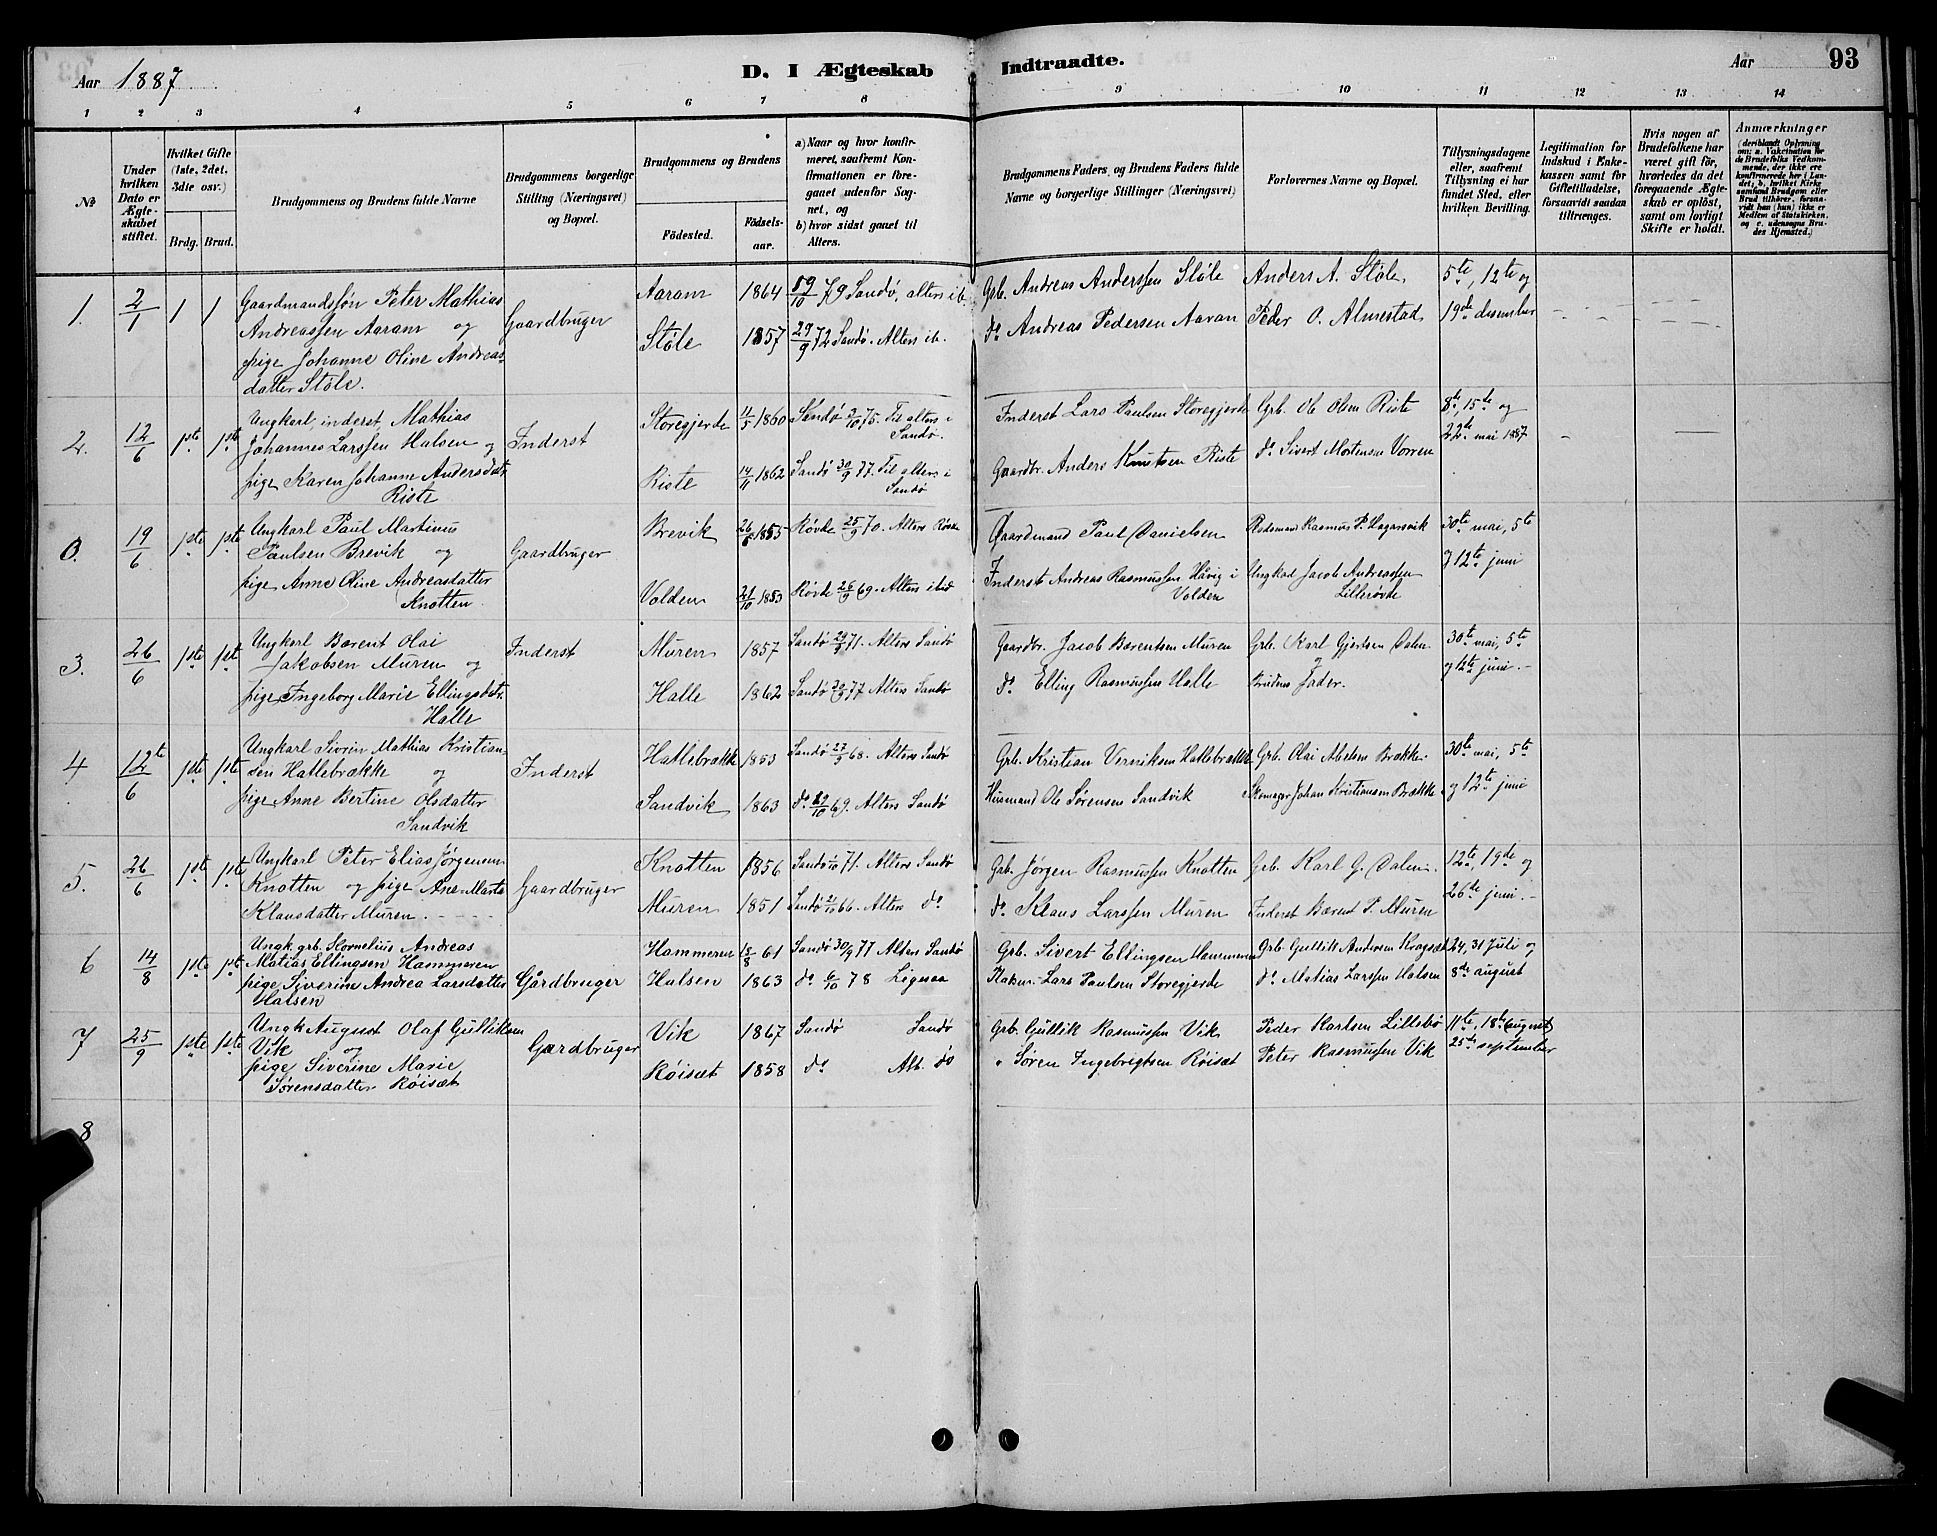 Aar 1887.
D. I Ægteskab Indtraadte.
Aar
93
1 2 3 4 5 6 7 8 9 10 11 12 13 14
No
Under hvilken Dato er Ægteskabet stiftet.
Hvilket Gifte (1ste, 2det, 3die osv.)
Brdg. Brud.
Brudgommens og Brudens fulde Navne
Brudgommens borgerlige Stilling (Næringsvei) og Bopæl.
Brudgommens og Brudens
Födested. Födsels-aar.
a) Naar og hvor konfirmeret, saafremt Konfirmationen er foregaaet udenfor Sognet, og
b) hvor sidst gaaet til Alters.
Brudgommens Faders og Brudens Faders fulde Navne og borgerlige Stillinger (Næringsvei)
Forlovernes Navne og Bopæl.
Tillysningsdagene eller, saafremt Tillysning ei har fundet Sted, efter hvilken Bevilling.
Legitimation for Indskud i Enkekassen samt for Giftetilladelse, forsaavidt saadan tiltrænges.
Hvis nogen af Brudefolkene har været gift för, hvorledes da det foregaaende Ægteskab er oplöst, samt om lovligt Skifte er holdt.
Anmærkninger (deriblandt Oplysning om: a. Vakcination for de Brudefolks Vedkommende, der ikke ere konfirmerede her i Landet; b. hvilket Kirkesamfund Brudgom eller Brud tilhörer, forsaavidt han (hun) ikke er Medlem af Statskirken, og c. udensogns Brudes Hjemsted.)
1. 2/1 1 1 Gaardmandsøn Peter Mathias
Andreassen Aaram og
pige Johanne Oline Andreas-
datter Støle.
Gaardbruger
Aaram 1864 /10 79 Sandø, alters ib.
Støle 1857 29/9 72 Sandø. Alters ib.
Grb. Andreas Anderssen Støle
do Andreas Pedersen Aaram
Anders A. Støle,
Peder O. Almestad
5te, 12te og
19de desember
2. 12/6 1ste 1ste Ungkarl, inderst, Mathias
Johannes Larssen Halsen og
pige Karen Johanne Andersdat
Riste
Inderst
Storegjerde 11/5 1860 Sandø 3/10 75. Til alters i
Sandø.
Riste 14/11 1862 Sandø 30/9 77. Til alters i
Sandø
Inderst Lars Paulsen Storegjerde
Gaardbr. Anders Knutsen Riste
Grb. Ole Olsen Riste
do Sivert Mortensen Vorren
8de, 15te og
22de mai 1887
0. 19/6 1ste 1ste Ungkarl Paul Martinus
Paulsen Brevik og
pige Anne Oline Andreasdatter
Knotten.
Gaardbruger
Brevik 26/6 1855 Røvde 25/9 70. Alters Røvde
Volden 21/10 1853 Røvde 26/9 69. Alters ibid
Gaardmand Paul Danielsen
Inderst Andreas Rasmussen Håvig i
Volden
Rasmus P. Hagarsvik
Ungkarl Jacob Andreassen
Lillerøvde
30te mai, 5te
og 12te juni
3. 26/6 1ste 1ste Ungkarl Bærent Olai
Jakobsen Muren og
pige Ingeborg Marie Ellingsdatr
Halle
Inderst
Muren 1857 Sandø 29/9 71. Alters Sandø
Halle 1862 Sandø 30/9 77 Alters Sandø
Gaardbr. Jacob Bærentsen Muren
do Elling Rasmussen Halle
Grb. Karl Gjertsen Dalen.
og
Brudens fader.
30te mai, 5te
og 12te juni.-
4 12te/6 1ste 1ste Ungkarl Sivrin Mathias Kristian-
sen Hatlebrække og
pige Anne Bertine Olsdatter
Sandvik
Inderst
Hatlebrække 1853 Sandø 27/9 68. Alters Sandø
Sandvik 1863 do /10 69. Alters Sandø
Grb. Kristian Verniksen Hatlebrække
Husmand Ole Sørensen Sandvik
Grb. Olai Abelsen Brække
Skomager Johan Kristiansen Brække
30te mai, 5te
og 12te juni
5. 26/6 1ste 1ste Ungkarl Peter Elias Jørgensen
Knotten og pige Ane Marte
Klausdatter Muren.
Gaardbruger
Knotten 1856 Sandø /10 71. Alters Sandø
Muren 1851 Sandø 21/10 66. Alters do
Grb. Jørgen Rasmussen Knotten
do Klaus Larssen Muren
Grb. Karl G. Dalen.
Inderst Bærent P. Muren
12te, 19de og
26de juni.-
6 14/8 1ste 1ste Ungk. grb. Kornelius Andreas
Matias Ellingsen Hammeren
pige Siverine Andrea Larsdatter
Halsen
Gårdbruger
Hammeren 18/8 61 Sandø 30/9 77 Alters Sandø
Halsen 1863 do 6/10 78 Ligesaa
Grb. Sivert Ellingsen Hammeren
Lars Paulsen Storegjerde
Grb. Gullik Andersen Kragset
do Matias Larssen Halsen
24, 31 Juli og
8de august
7 25/9 1ste 1ste Ungk August Olaf Gulliksen
Vik og
pige Siverine Marie
Sørensdatter Røisæt
Gardbruger
Vik 1867 Sandø Sandø
Røisæt 1858 do Alt. do
Grb. Gullik Rasmussen Vik
" Søren Ingebrigtsen Røisæt
Peder Karlsen Lillebø
Peter Rasmussen Vik
11te, 18de August
25de september
8